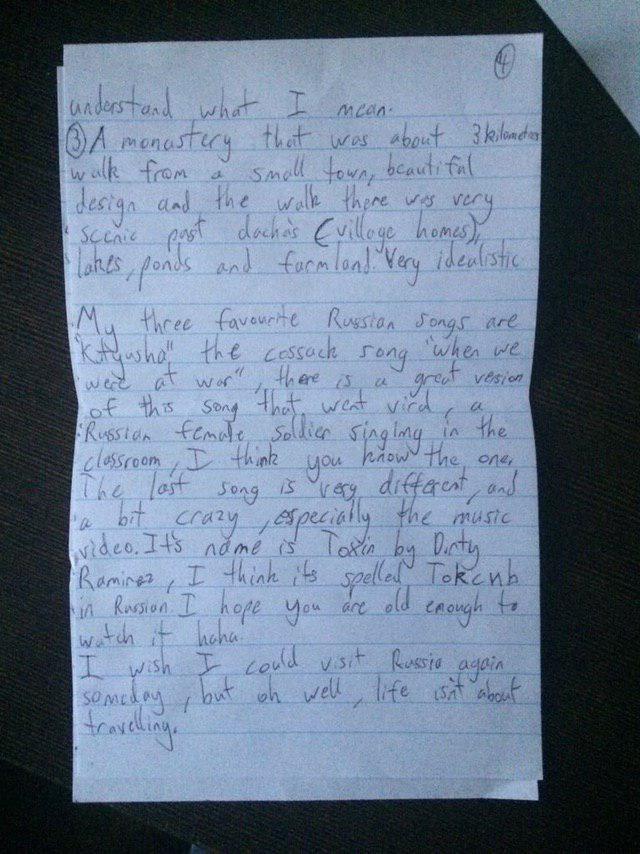 4
understand what I mean.
3 A monastery that was about 3 kilometres
walk from a small town, beautiful
design and the walk there was very
scenic past dacha's (village homes),
lakes, ponds and farmland. Very idealistic
My three favourite Russian songs are
"Katyusha" the cossack song "when we
were at war", there is a great vesion
of this song that went viral, a
Russian female soldier singing in the
classroom, I think you know the one.
The last song is very different, and
a bit crazy, especially the music
video. It's name is Toxin by Dirty
Ramirez, I think its spelled Tokcnb
in Russian. I hope you are old enough to
watch it haha.
I wish I could visit Russia again
someday, but oh well, life isn't about
travelling.